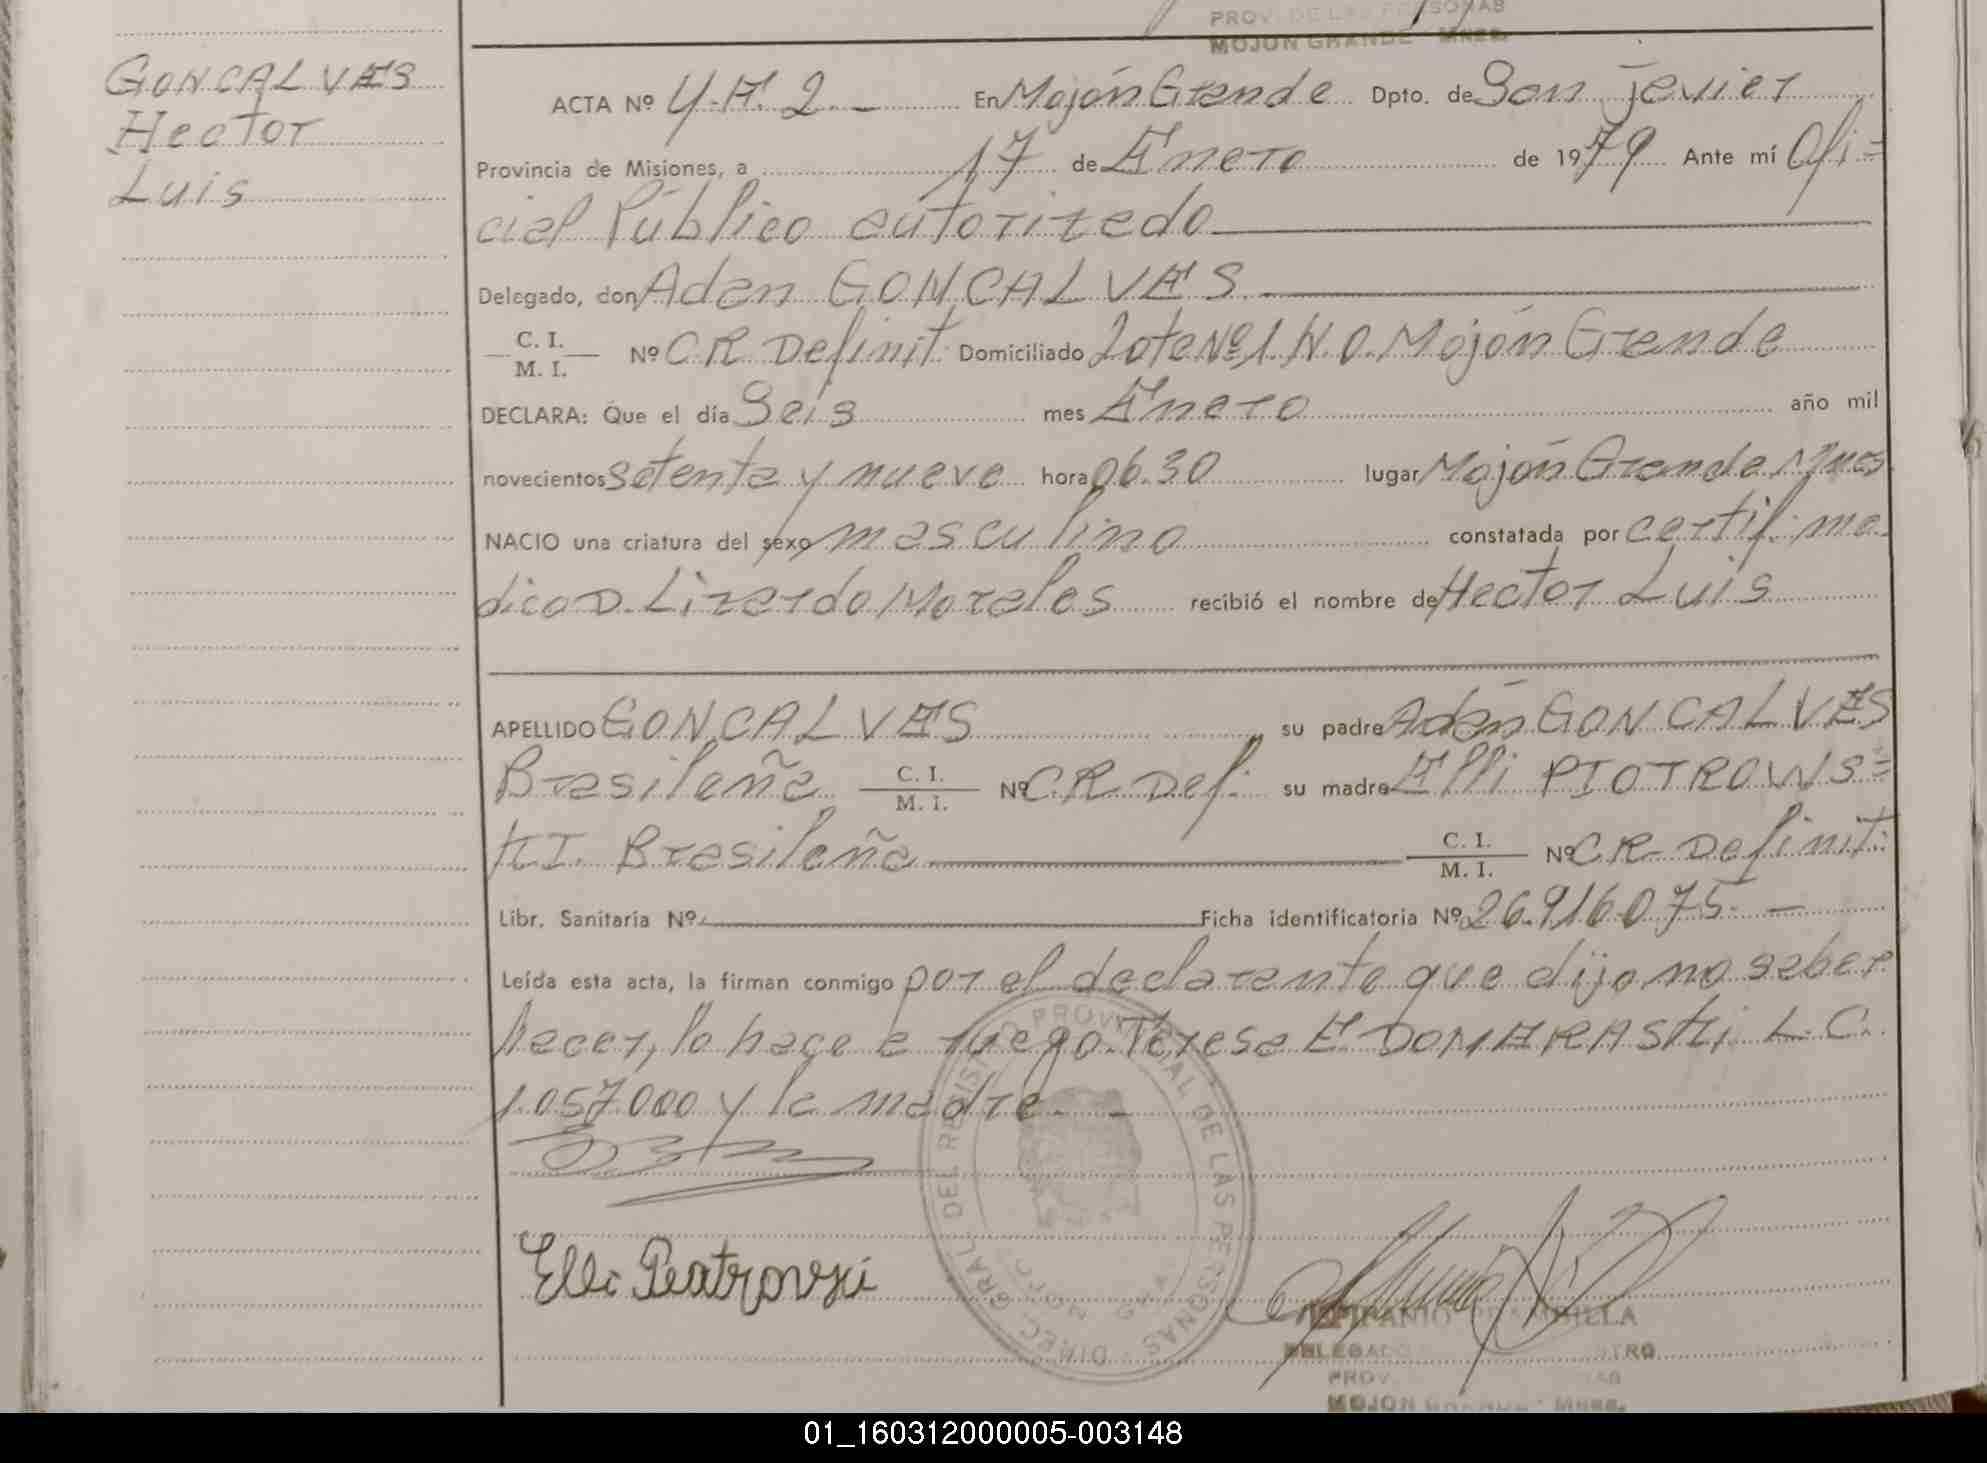 PROV. DE LAS PERSONAS
MOJON GRANDE - Mnes.
GONCALVES
Hector
Luis
ACTA Nº 4.A. 2.- En Mojón Grande Dpto. de San Javier
Provincia de Misiones, a 17 de Enero de 1979 Ante mí Ofi=
cial Público autorizado
Delegado, don Adan GONCALVES
C. I.
M. I. Nº C.R. Definit. Domiciliado Lote Nº 1. N.O. Mojón Grande
DECLARA: Que el día Seis mes Enero año mil
novecientos setenta y nueve hora 06.30 lugar Mojón Grande Mnes
NACIO una criatura del sexo masculino constatada por certif. me
dico D. Lizardo Morales recibió el nombre de Hector Luis
APELLIDO GONCALVES su padre Adán GONCALVES
Brasileña C. I.
M. I. Nº C.R. Def. su madre Elli PIOTROWS=
KI. Brasileña C. I.
M. I. Nº C.R. Definit.
Libr. Sanitaria Nº Ficha identificatoria Nº 26.916.075.-
Leída esta acta, la firman conmigo por el declarante que dijo no saber
hacer, lo hace a ruego Teresa E DOMERASKI L.C.
1.057.000 y la madre.-
Elli Peatrovski
DIREC. GRAL. DEL REGISTRO PROVINCIAL DE LAS PERSONAS
DELEGADO
PROV.
MOJON GRANDE - Mnes.
01_160312000005-003148